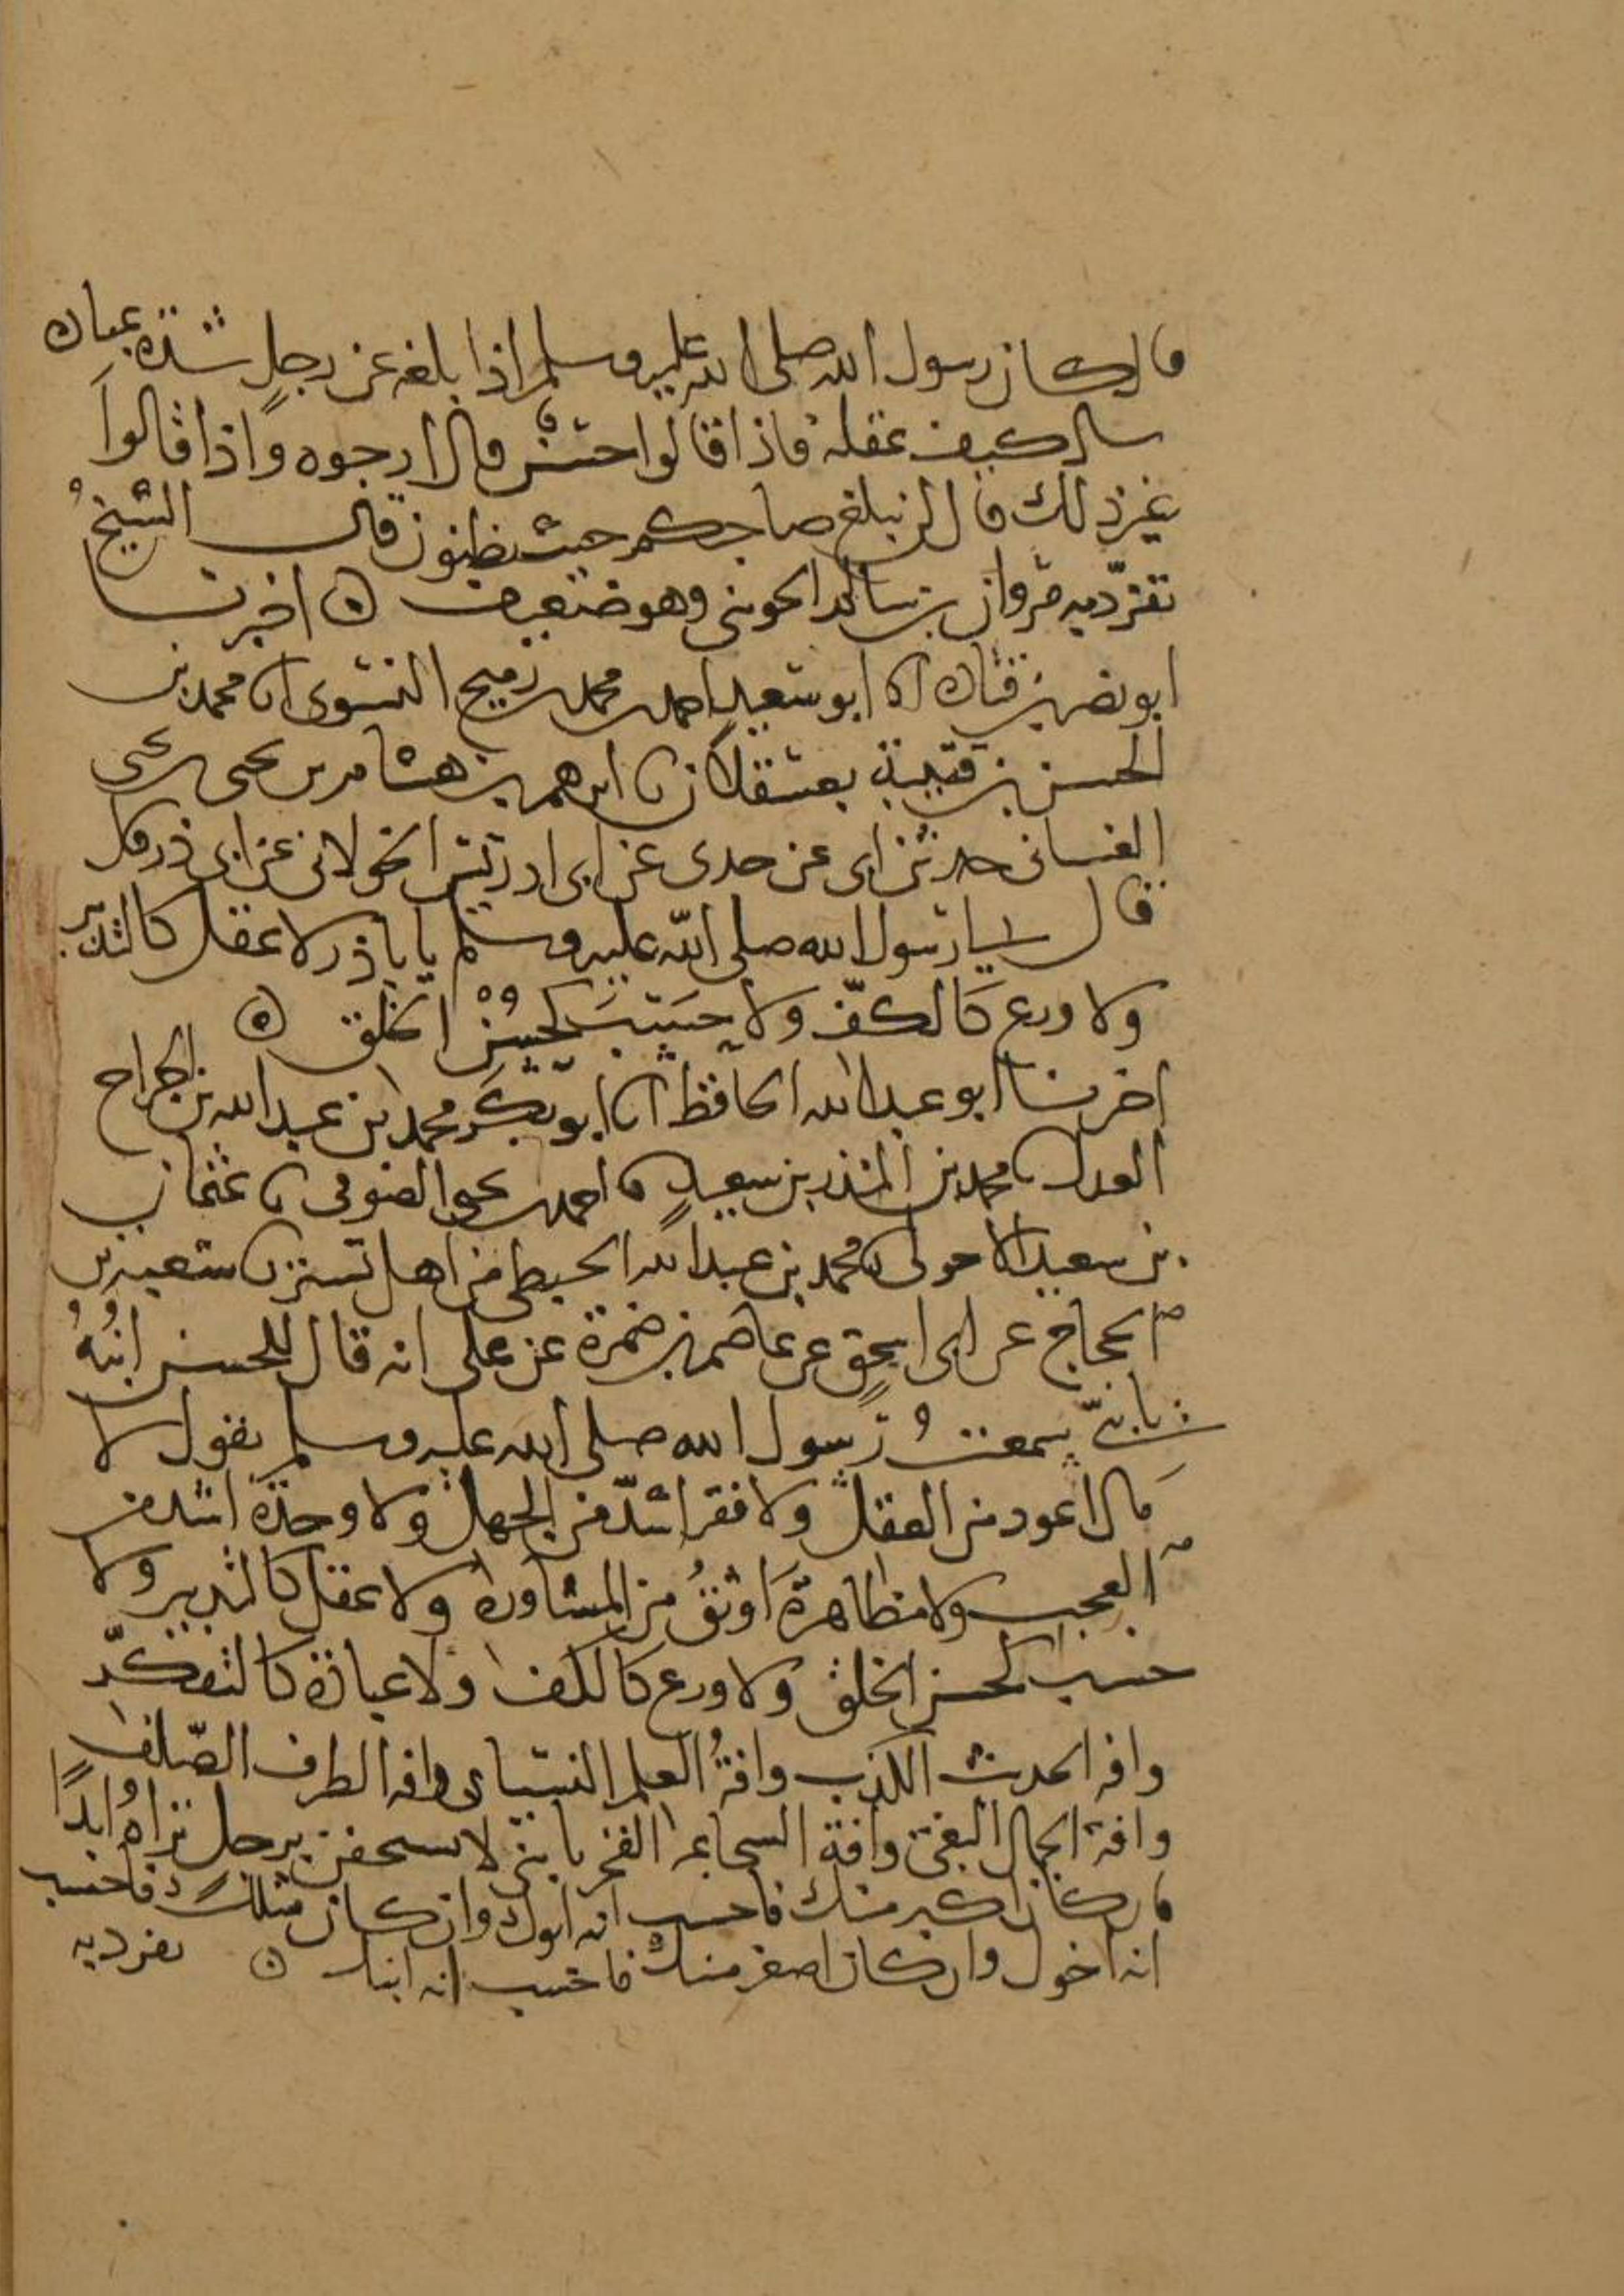 قال كان رسول الله صلى الله عليه وسلم اذا بلغه عن رجل شدة عبادة
سال كيف عقله فاذا قالوا حسن قال ارجوه واذا قالوا
غير ذلك قال لن يبلغ صاحبكم حيث تظنون قال الشيخ
تفرد به مروان بن سالم الجزري وهو ضعيف ه اخبرنا
ابو نصر بن قتادة انا ابو سعيد احمد بن محمد بن رميح النسوي نا محمد بن
الحسن بن قتيبة بعسقلان نا ابرهيم بن هشام بن يحيى بن يحيى
الغساني حدثني ابي عن جدي عن ابي ادريس الخولاني عن ابي ذر قال
قال لي رسول الله صلى الله عليه وسلم يا باذر لا عقل كالتدبير
ولا ورع كالكف ولا حسب كحسن الخلق ه
اخبرنا ابو عبد الله الحافظ انا ابو بكر محمد بن عبد الله بن الجراح
العدل نا محمد بن المنذر بن سعيد نا احمد بن يحيى الصوفي نا عثمان
بن سعيد الاحول نا محمد بن عبد الله الحبطي من اهل تستر نا شعبة بن
الحجاج عن ابي اسحق عن عاصم بن ضمرة عن علي انه قال للحسن ابنه
يا بني سمعت رسول الله صلى الله عليه وسلم يقول لا
مال اعود من العقل ولا فقر اشد من الجهل ولا وحدة اشد من
العجب ولا مظاهرة اوثق من المشاورة ولا عقل كالتدبير ولا
حسب كحسن الخلق ولا ورع كالكف ولا عبادة كالتفكر
وافة الحديث الكذب وافة العلم النسيان وافة الظرف الصلف
وافة الجمال البغي وافة السجاعه الفخر يا بني لا تستخفن برجل تراه ابدا
فان كان اكبر منك فاحسب انه ابوك وان كان مثلك فاحسب
انه اخوك وان كان اصغر منك فاحسب انه ابنك ه تفرد به